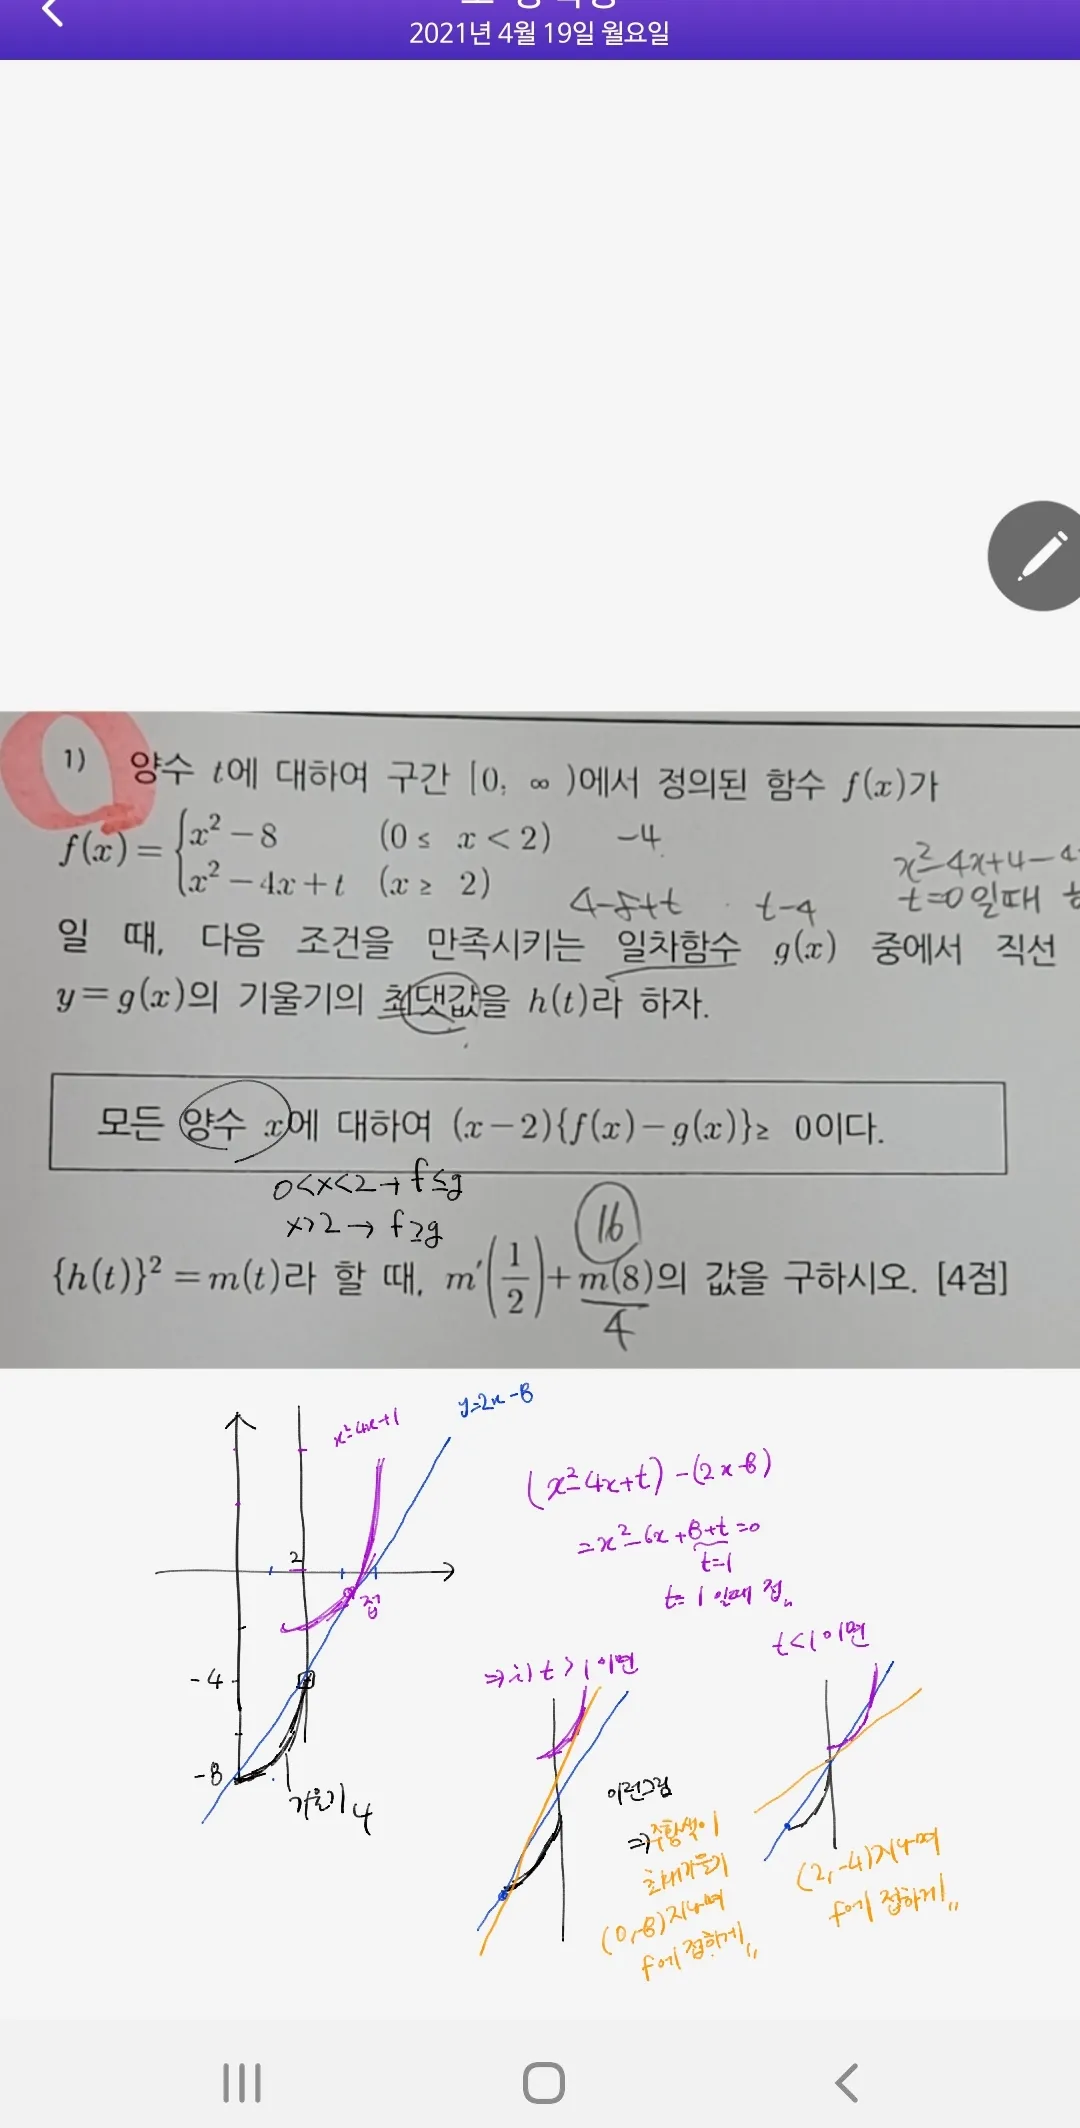 2021년 4월 19일 월요일
1) 양수 t에 대하여 구간 [0, ∞)에서 정의된 함수 f(x)가
f(x) = { x² − 8 (0 ≤ x < 2) −4
x² − 4x + t (x ≥ 2)
x²−4x+4−4
4−8+t · t−4
t=0일때
일 때, 다음 조건을 만족시키는 일차함수 g(x) 중에서 직선
y = g(x)의 기울기의 최댓값을 h(t)라 하자.
모든 양수 x에 대하여 (x−2){f(x)−g(x)}≥ 0이다.
0<x<2→ f≤g
x>2 → f≥g
16
{h(t)}² = m(t)라 할 때, m′(1/2)+m(8)의 값을 구하시오. [4점]
4
y=2x-8
x²-4x+1
2
접
-4
-8
기울기 4
(x²-4x+t) -(2x-8)
=x²-6x+8+t=0
t=1
t=1 일때 접〃
⇒ i) t>1이면
이런그림
⇒주황색이
최대기울기
(0,-8)지나며
f에 접하게〃
t<1이면
(2,-4)지나며
f에 접하게〃